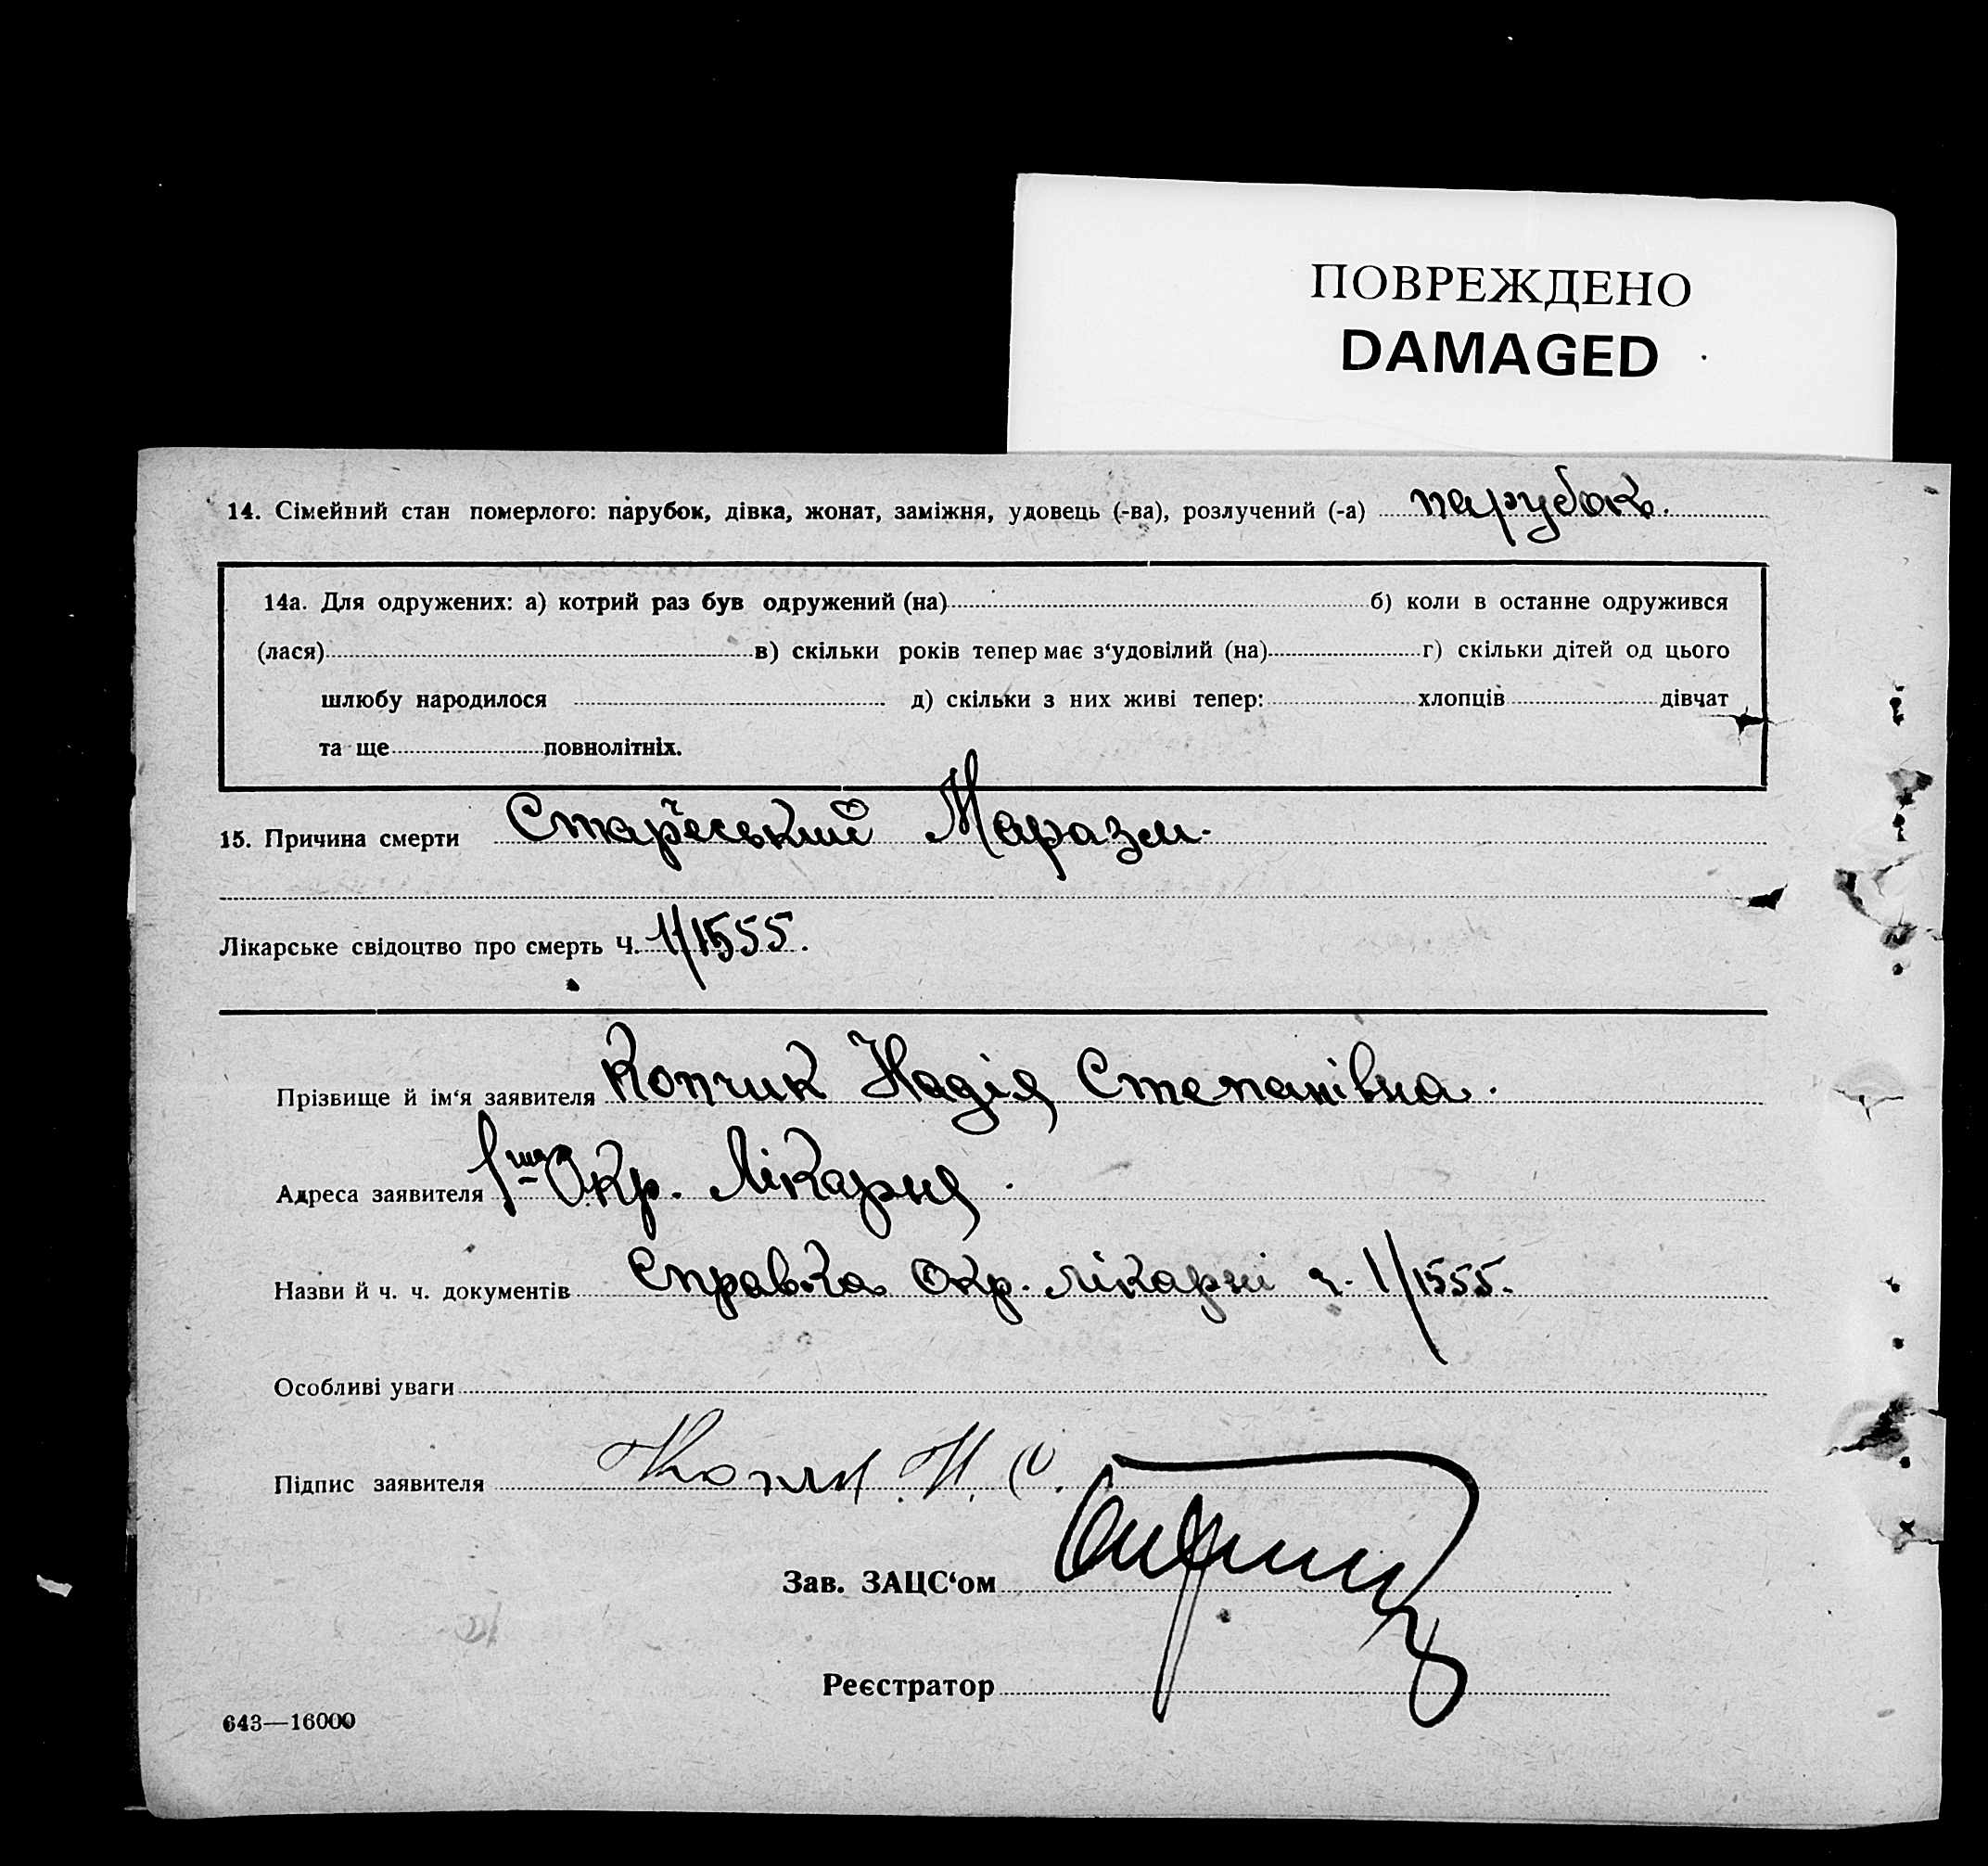 ПОВРЕЖДЕНО
DAMAGED
14. Сімейний стан померлого: парубок, дівка, жонат, заміжня, удовець (-ва), розлучений (-а) парубок.
14а. Для одружених: а) котрий раз був одружений (на) б) коли в останне одружився
(лася) в) скільки років тепер має з‘удовілий (на) г) скільки дітей од цього
шлюбу народилося д) скільки з них живі тепер: хлопців дівчат
та ще повнолітніх.
15. Причина смерти Старческий Маразм.
Лікарське свідоцтво про смерть Ч. 1/1555.
Прізвище й ім‘я заявителя Копчик Надія Степанівна.
Адреса заявителя 1ша Окр. Лікарня.
Назви й ч. ч. документів Справка Окр. лікарні ч. 1/1555.
Особливі уваги
Підпис заявителя Н. С.
Зав. ЗАЦС‘ом
Реєстратор
643—16000